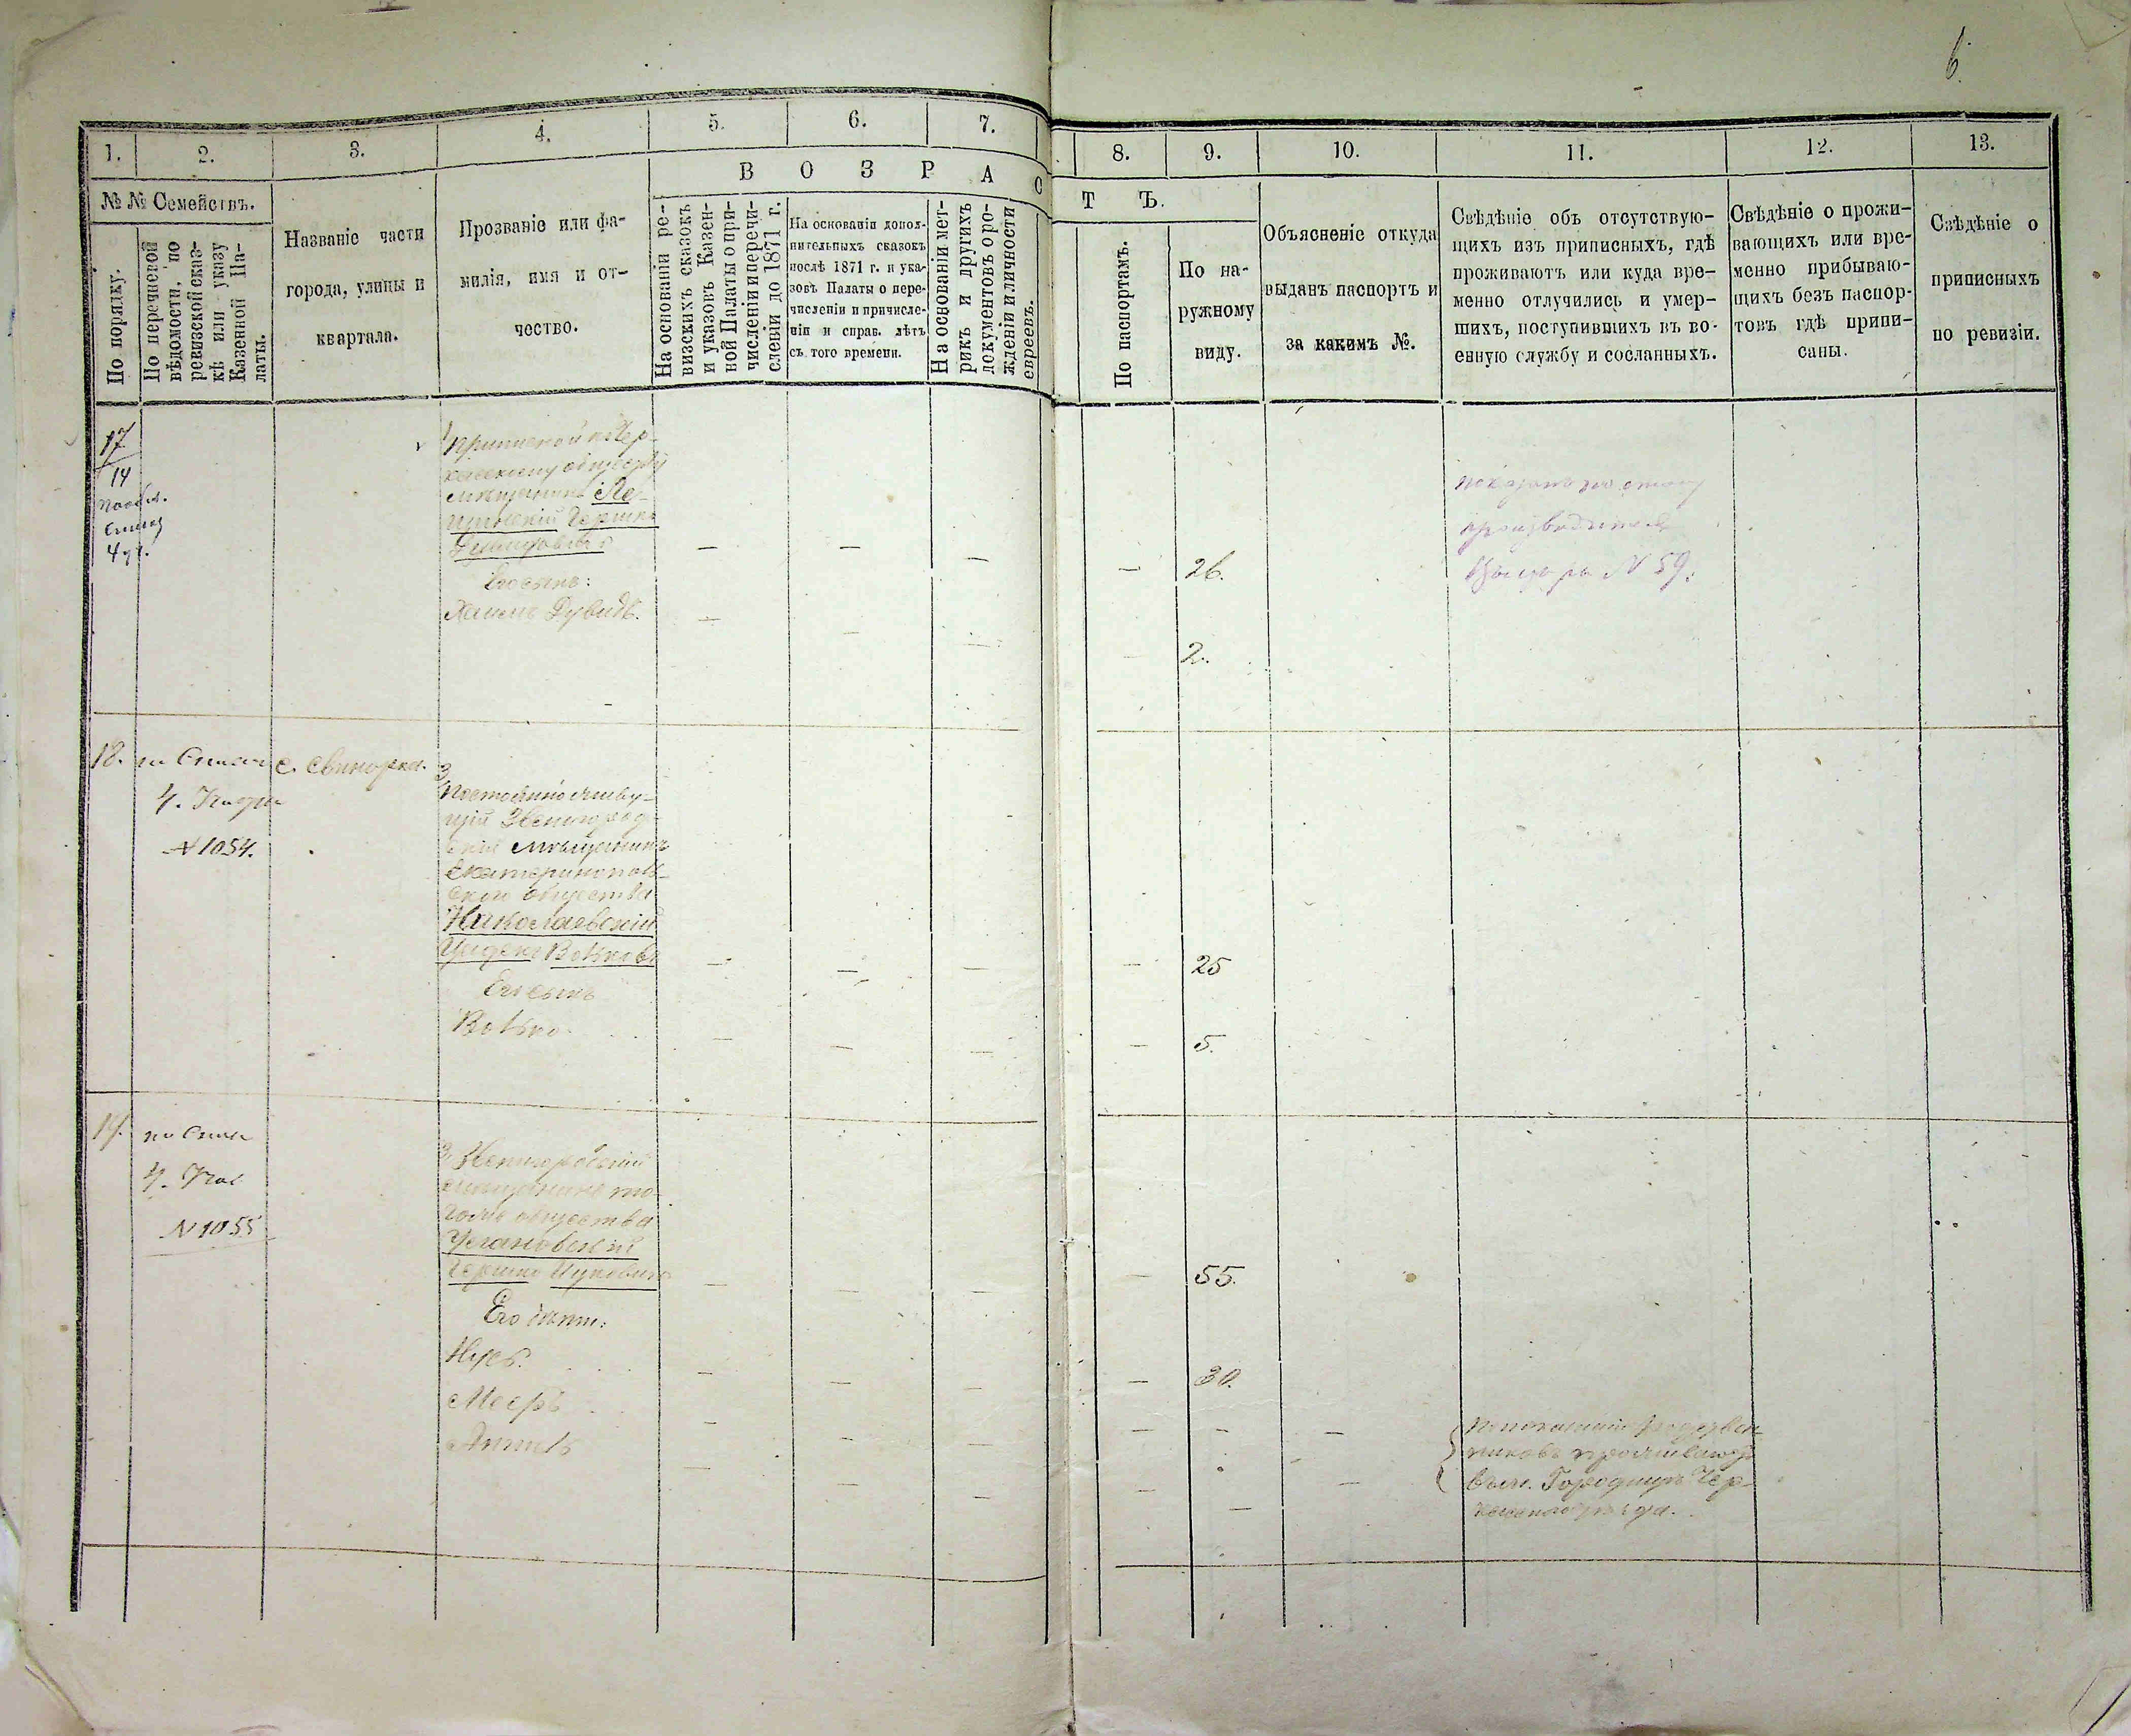 6.
1.
2.
3.
4.
5.
6.
7.
8.
9.
10.
11.
12.
13.
№ № Семействъ.
По порядку.
По перечневой
вѣдомости, по
ревизской сказ-
кѣ или указу
Казенной Па-
латы.
Названіе части
города, улицы и
квартала.
Прозваніе или фа-
милія, имя и от-
чество.
В О З Р А С Т Ъ.
На основаніи ре-
визскихъ сказокъ
и указовъ Казен-
ной Палаты о при-
численіи и перечи-
сленіи до 1871 г.
На основаніи допол-
нительныхъ сказокъ
послѣ 1871 г. и ука-
зовъ Палаты о пере-
численіи и причисле-
ніи и справ. лѣтъ
съ того времени.
На основаніи мет-
рикъ и другихъ
документовъ о ро-
жденіи и личности
евреевъ.
По паспортамъ.
По на-
ружному
виду.
Объясненіе откуда
выданъ паспортъ и
за какимъ №.
Свѣдѣніе объ отсутствую-
щихъ изъ приписныхъ, гдѣ
проживаютъ или куда вре-
менно отлучились и умер-
шихъ, поступившихъ въ во-
енную службу и сосланныхъ.
Свѣдѣніе о прожи-
вающихъ или вре-
менно прибываю-
щихъ безъ паспор-
товъ гдѣ припи-
саны.
Свѣдѣніе о
приписныхъ
по ревизіи.
17
14
Приписной къ Чер-
касскому обществу
мѣщанинъ
Гершко
26.
Его сынъ:
Хаимъ Дувидъ.
2.
№ 59.
18.
с. Свинарка.
№ 1054.
Постоянно живу-
щій Звенигород-
скій мѣщанинъ
Екатеринополь-
ского общества
Николаевскій
Волькова
25
Его сынъ
Волько.
5.
19.
№ 1055
Звенигородскій
мѣщанинъ то-
гоже общества
Гершко Ицковичъ
55.
Его дѣти:
30.
Мееръ
проживаютъ
въ м. Городищѣ Чер-
касскаго уѣзда.